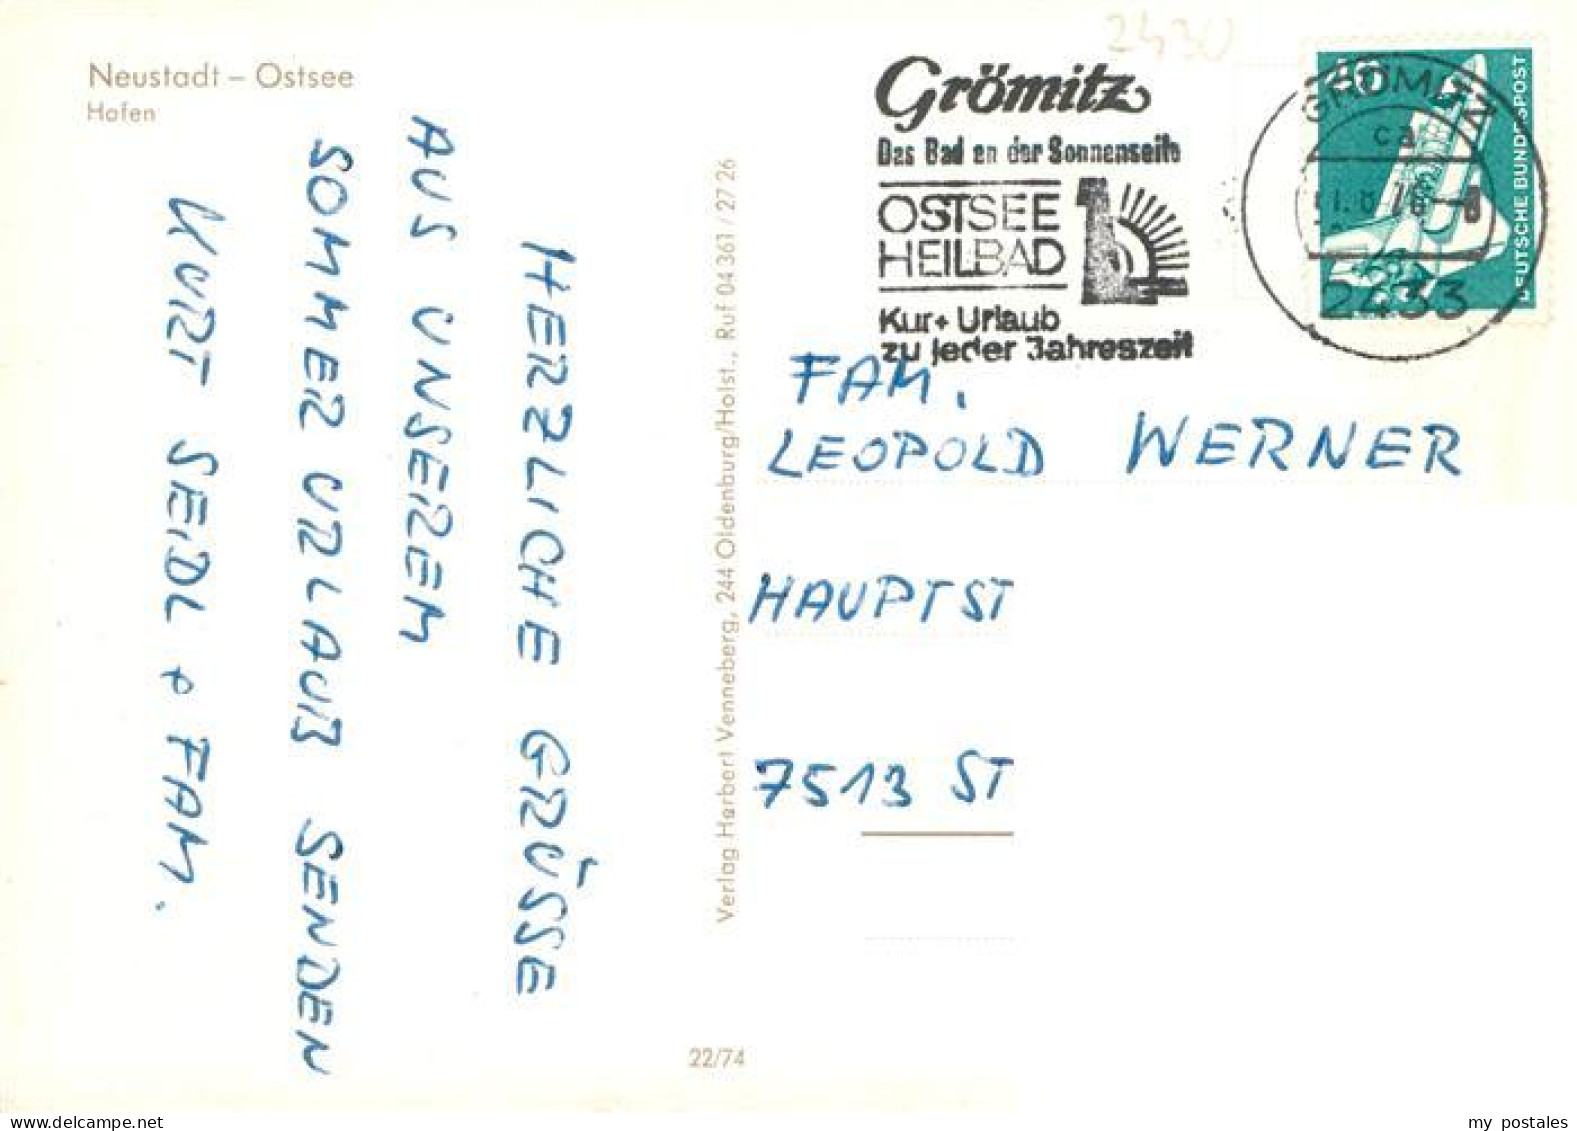 Neustadt – Ostsee
Hafen
HERZLICHE GRÜSSE
AUS UNSEREM
SOMMER URLAUB SENDEN
KURT SEIDL + FAM.
Verlag Herbert Venneberg, 244 Oldenburg/Holst., Ruf 04361/2726
22/74
2430
Grömitz
Das Bad an der Sonnenseite
OSTSEE
HEILBAD
Kur + Urlaub
zu jeder Jahreszeit
GRÖMITZ
ca
2433
40
DEUTSCHE BUNDESPOST
FAM.
LEOPOLD WERNER
HAUPTST
7513 ST
my postales